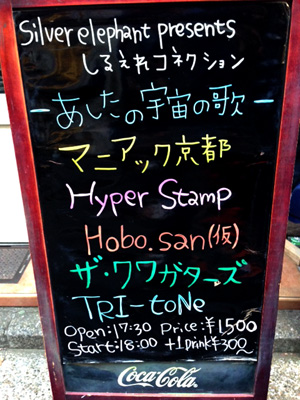 Silver elephant presents
しるえれコネクション
-あしたの宇宙の歌-
マニアック京都
Hyper Stamp
Hobo.san(仮)
ザ・ワワガターズ
TRI-toNe
Open:17:30 Price:¥1,500
Start:18:00 +1Drink¥300
Coca-Cola